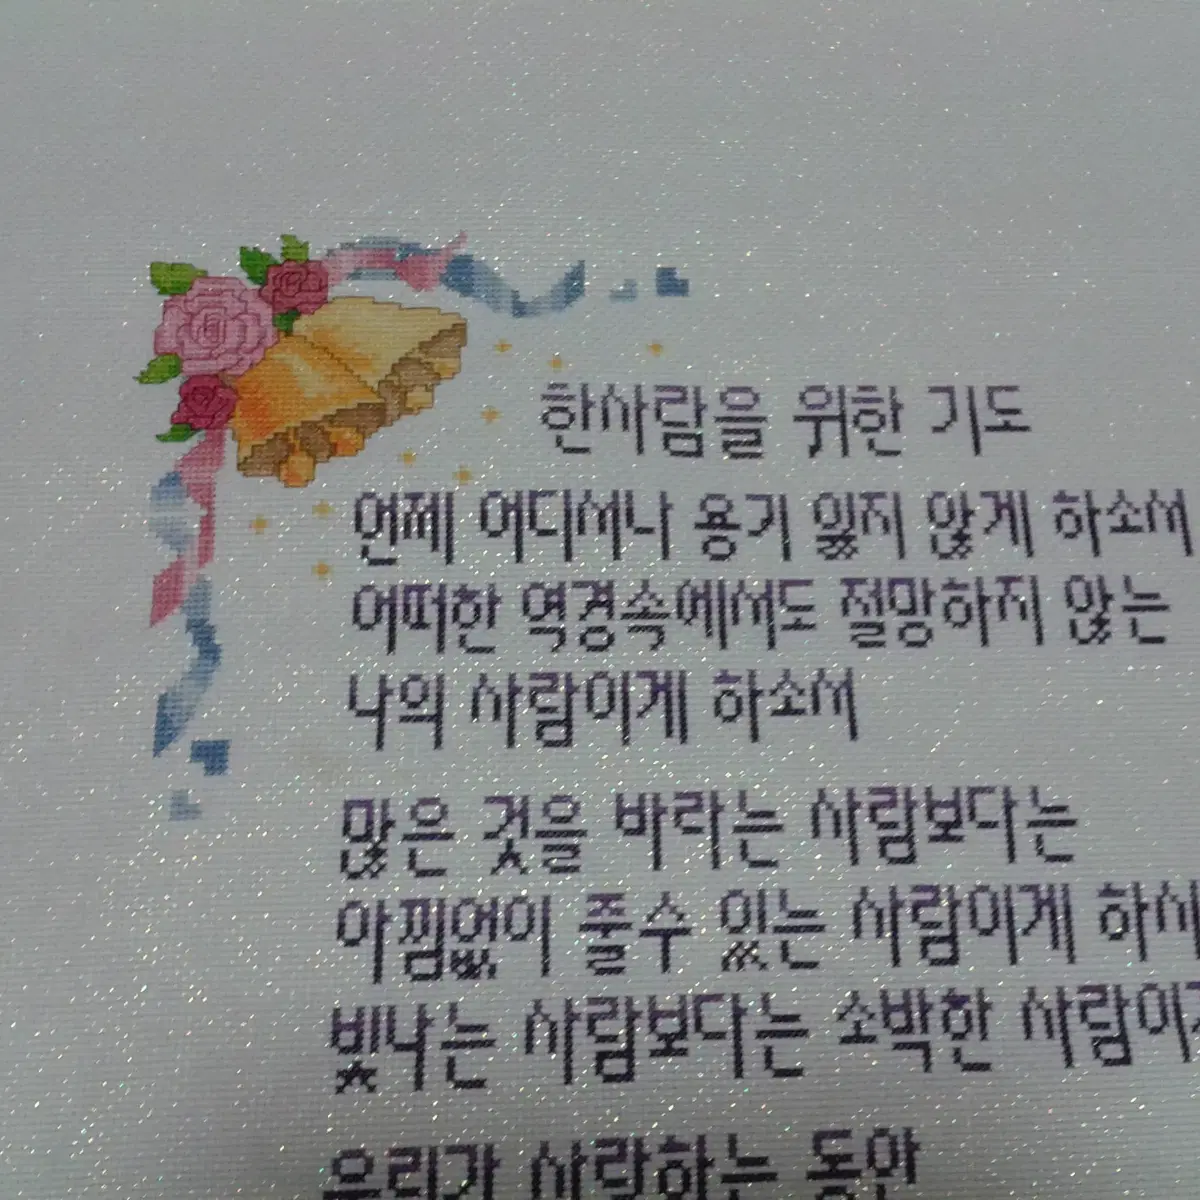 한사람을 위한 기도
언제 어디서나 용기 잃지 않게 하소서
어떠한 역경속에서도 절망하지 않는
나의 사람이게 하소서
많은 것을 바라는 사람보다는
아낌없이 줄수 있는 사람이게 하
빛나는 사람보다는 소박한 사람이
우리가 사랑하는 동안